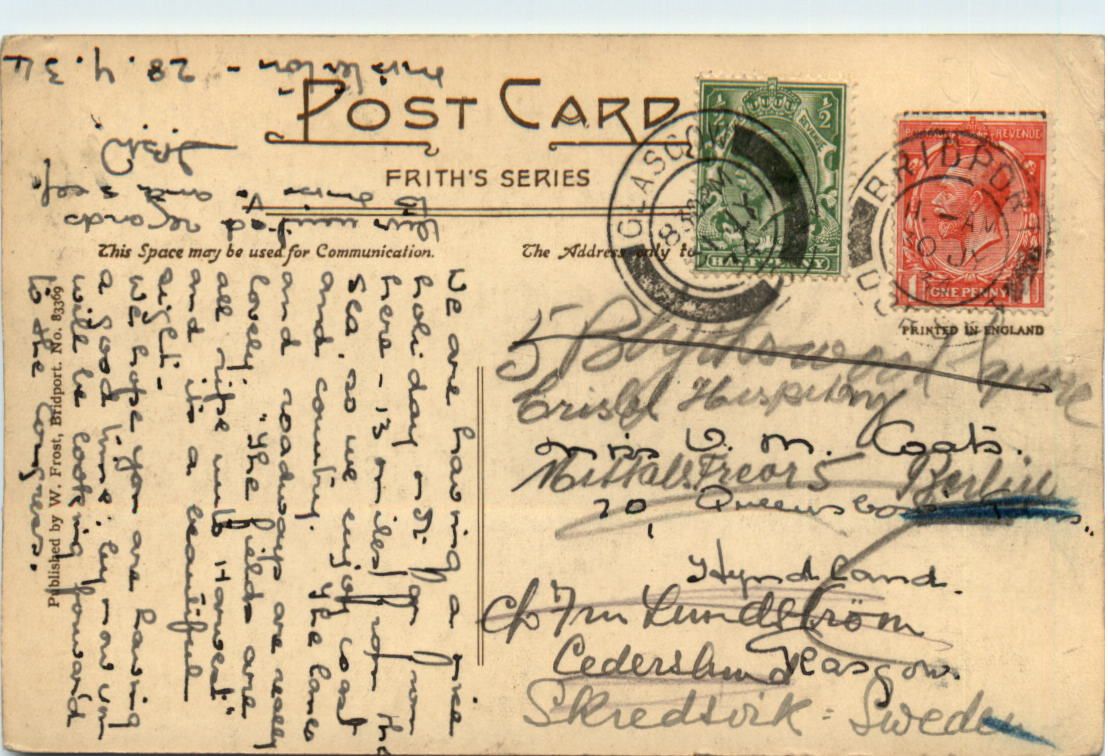 POST CARD
FRITH'S SERIES
This Space may be used for Communication.
The Address only to
PRINTED IN ENGLAND
Published by W. Frost, Bridport. No. 83369
½
½
REVENUE
ONE PENNY
GLASGOW
BRIDPORT
28.4.34
We are having a nice
holiday
here - 13 miles from the
sea, so we enjoy coast
and country. The lanes
and roadways are really
lovely. "The fields are
all ripe unto Harvest"
and it's a beautiful
sight -
We hope you are having
a good time: by now you
will be looking forward
to the Congress.
regards
5 Blythswood Square
Hospitz
Miss V. M. Coats.
Berlin
20,
Hyndland.
c/o Frn Lundström
Glasgow.
Cederslund
Skredsvik: Sweden